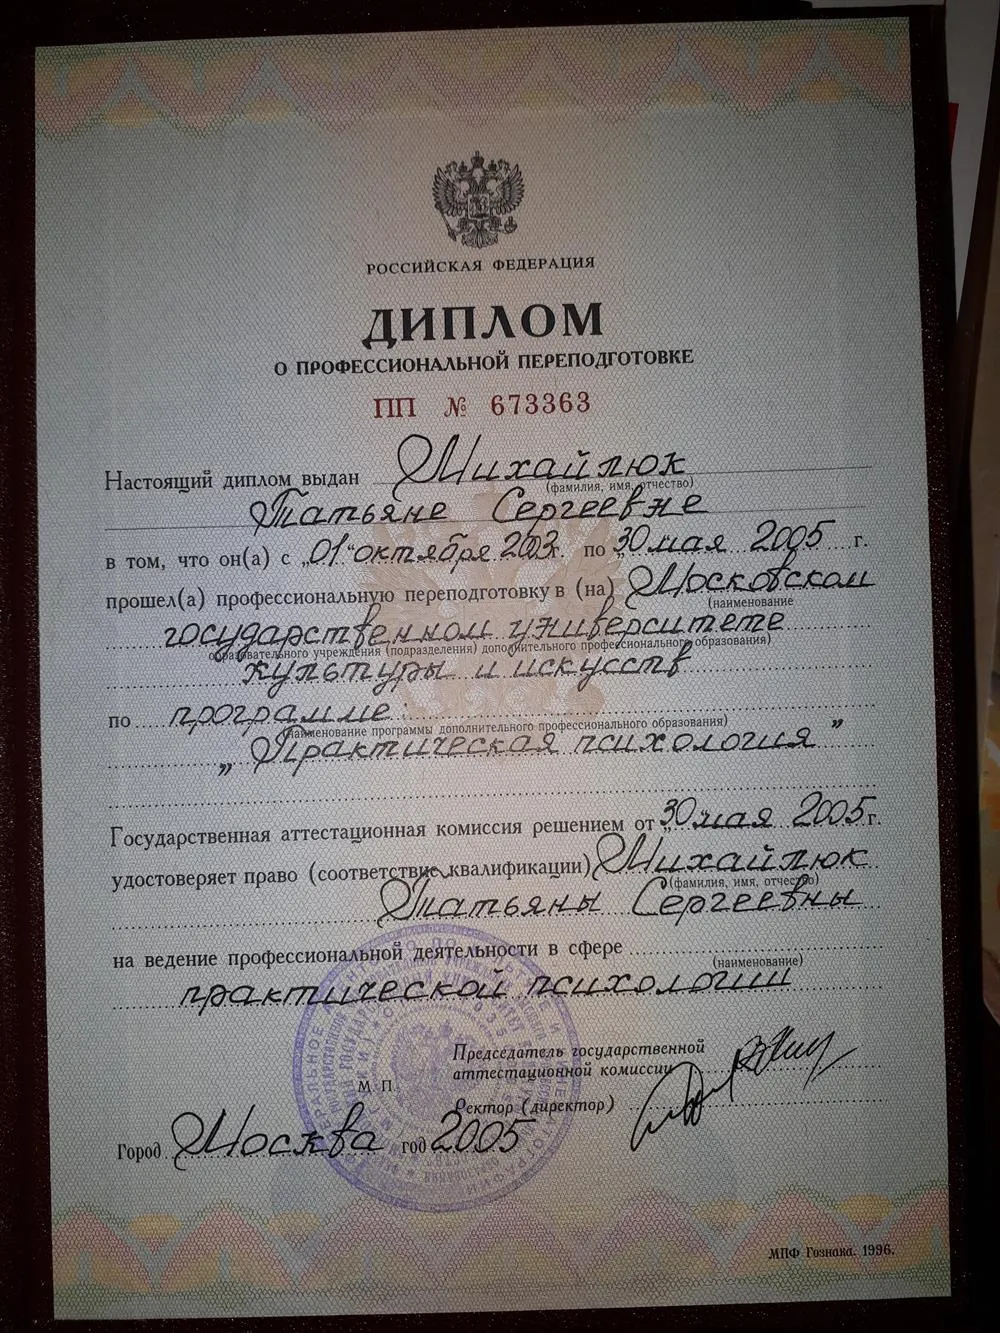 РОССИЙСКАЯ ФЕДЕРАЦИЯ
ДИПЛОМ
О ПРОФЕССИОНАЛЬНОЙ ПЕРЕПОДГОТОВКЕ
ПП № 673363
Настоящий диплом выдан Михайлюк
(фамилия, имя, отчество)
Татьяне Сергеевне
в том, что он(а) с „01“ октября 2003г. по „30 мая 2005 г.
прошел(а) профессиональную переподготовку в (на) Московском
(наименование
государственном университете
образовательного учреждения (подразделения) дополнительного профессионального образования)
культуры и искусств
по программе:
(наименование программы дополнительного профессионального образования)
„Практическая психология”
Государственная аттестационная комиссия решением от „30 мая 2005г.
удостоверяет право (соответствие квалификации) Михайлюк
(фамилия, имя, отчество)
Татьяны Сергеевны
на ведение профессиональной деятельности в сфере
(наименование)
практической психологии
Председатель государственной
аттестационной комиссии
М. П.
Ректор (директор)
Город Москва год 2005
МПФ Гознака. 1996.